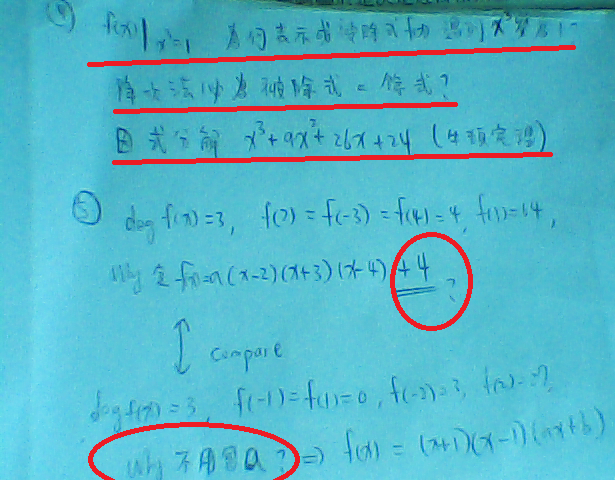 ④ f(x)|x³=1 為何表示成被除式f(x) 遇到 x³ 變為 1?
降次法 why 為 被除式 = 餘式?
因式分解 x³+9x²+26x+24 (牛頓定理)
⑤ deg f(x)=3, f(2)=f(-3)=f(4)=4, f(1)=14,
Why 令 f(x)=a(x-2)(x+3)(x-4)+4?
compare
deg f(x)=3, f(-1)=f(1)=0, f(-2)=3, f(2)=
Why 不用 a? ⇒ f(x) = (x+1)(x-1)(ax+b)